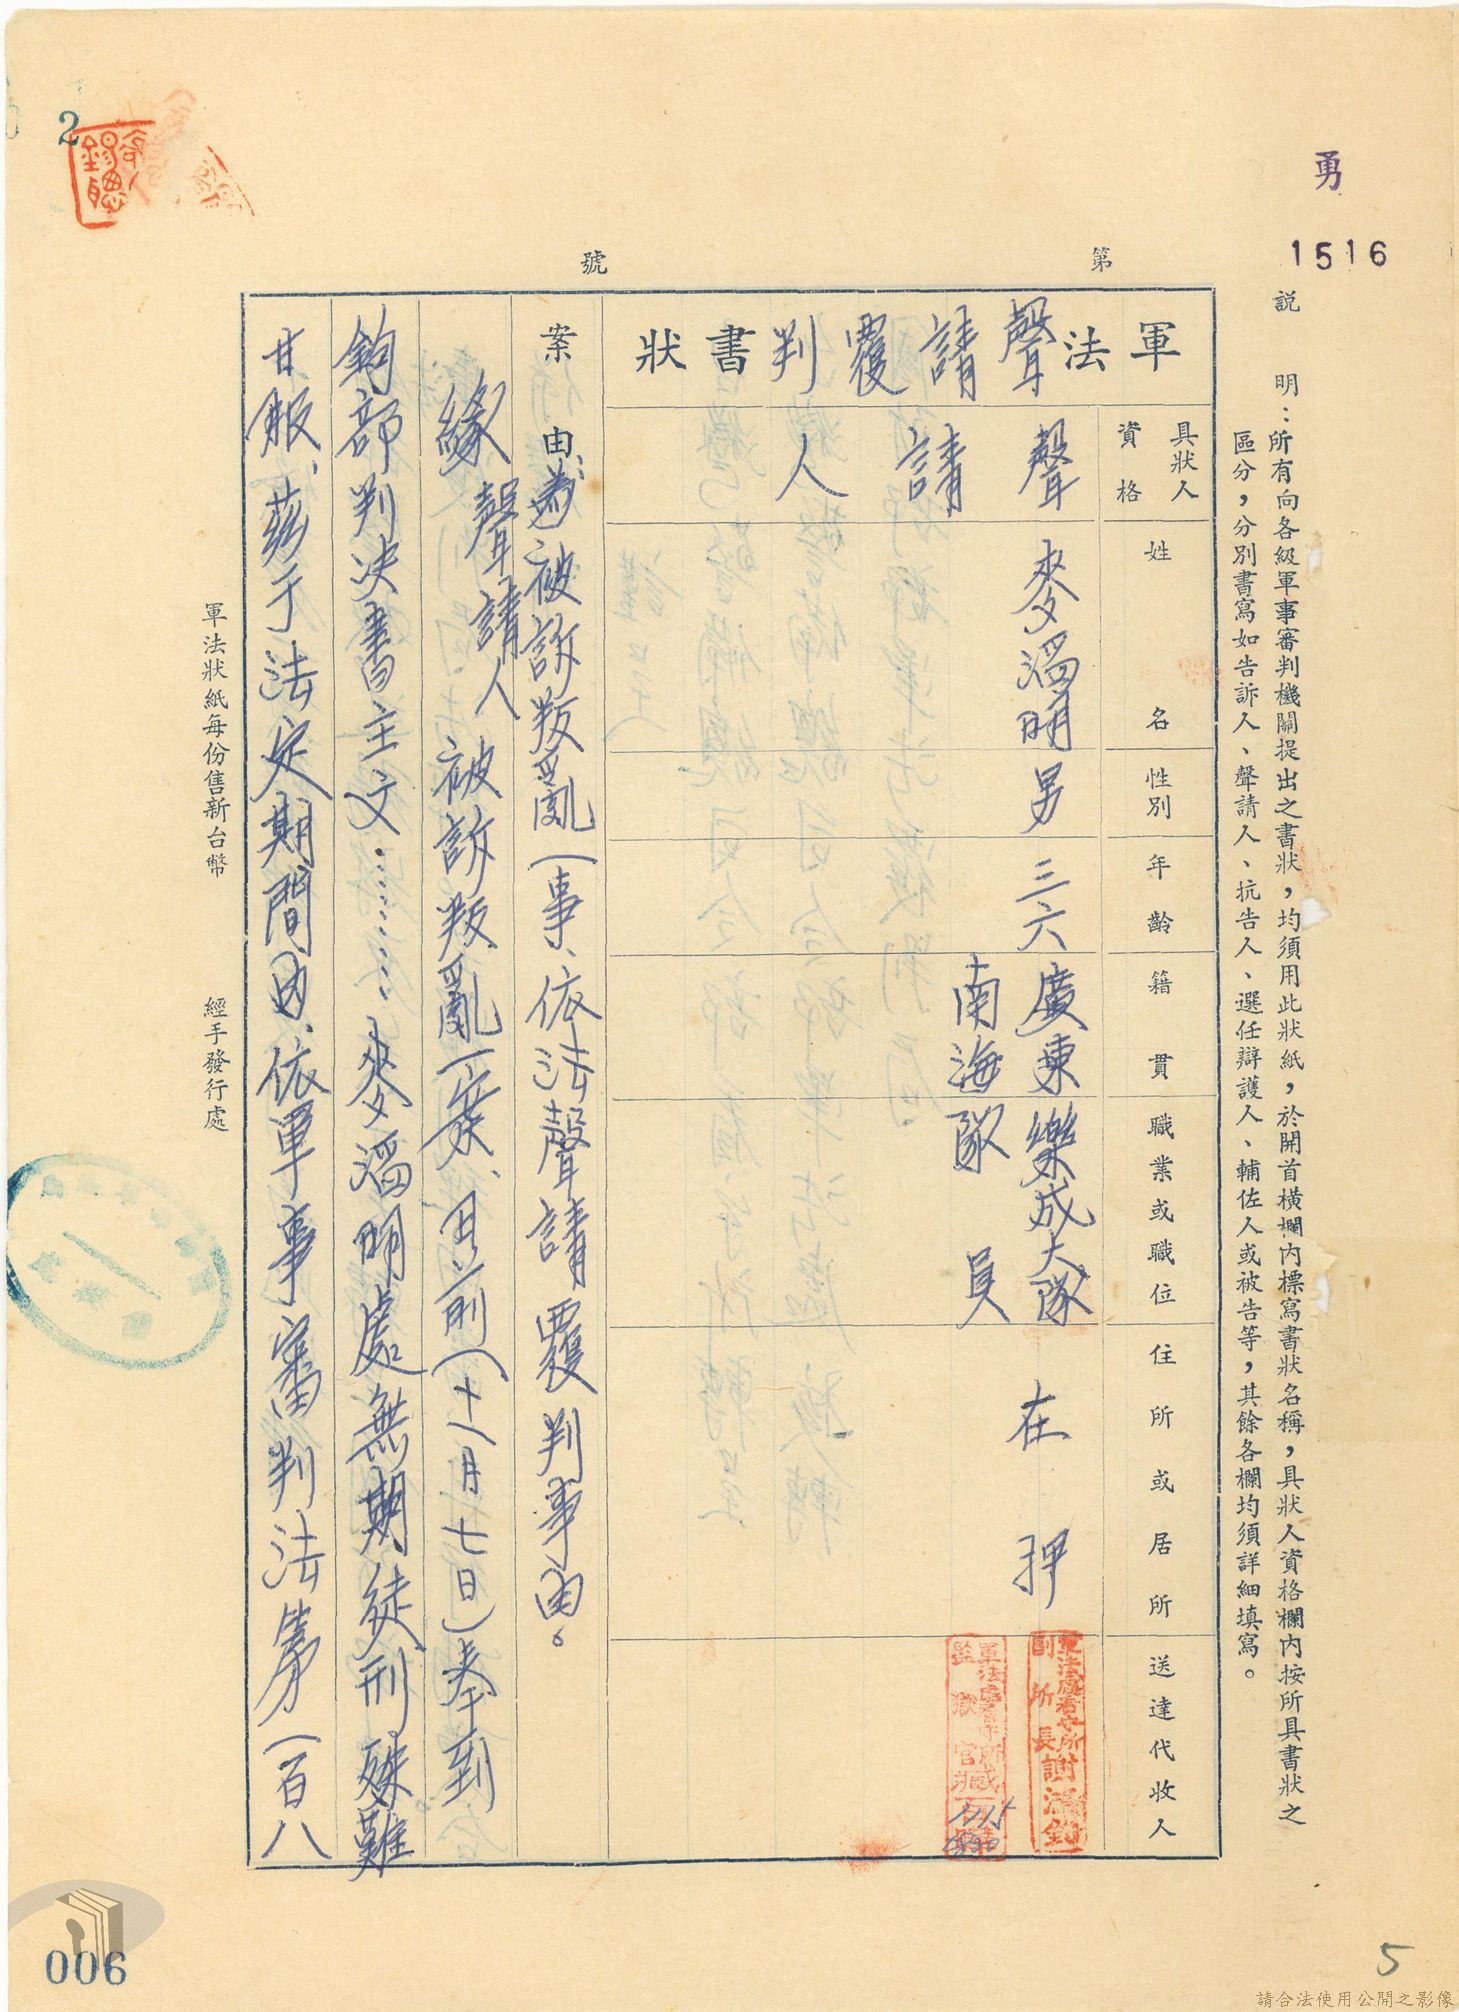 勇
1516
說　明：所有向各級軍事審判機關提出之書狀，均須用此狀紙，於開首橫欄內標寫書狀名稱，具狀人資格欄內按所具書狀之
區分，分別書寫如告訴人、聲請人、抗告人、選任辯護人、輔佐人或被告等，其餘各欄均須詳細填寫。
第　號
軍法聲請覆判書狀
具狀人資格
聲請人
姓名
麥滔明
性別
男
年齡
三六
籍貫
廣東南海
職業或職位
樂成大隊隊員
住所或居所
在押
送達代收人
軍法處看守所
副所長謝鴻鈞
軍法處看守所
監獄官臧
案由：為被訴叛亂一事、依法聲請覆判事由。
緣聲請人被訴叛亂一案、日前(十一月七日)奉到
鈞部判決書主文………麥滔明處無期徒刑。殊難
甘服、茲于法定期間內、依軍事審判法第一百八
軍法狀紙每份售新台幣　經手發行處
2
006
5
請合法使用公開之影像